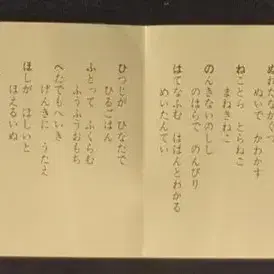 ぬれたながぐつ
ぬいで　かわかす
ねことら　とらねこ
まねきねこ
のんきないのしし
のはらで　のんびり
はてなふむ　ははんとわかる
めいたんてい
ひつじが　ひなたで
ひるごはん
ふとって　ふくらむ
ふうふうおもち
へたでもへいき
げんきに　うたえ
ほしが　ほしいと
ほえるいぬ